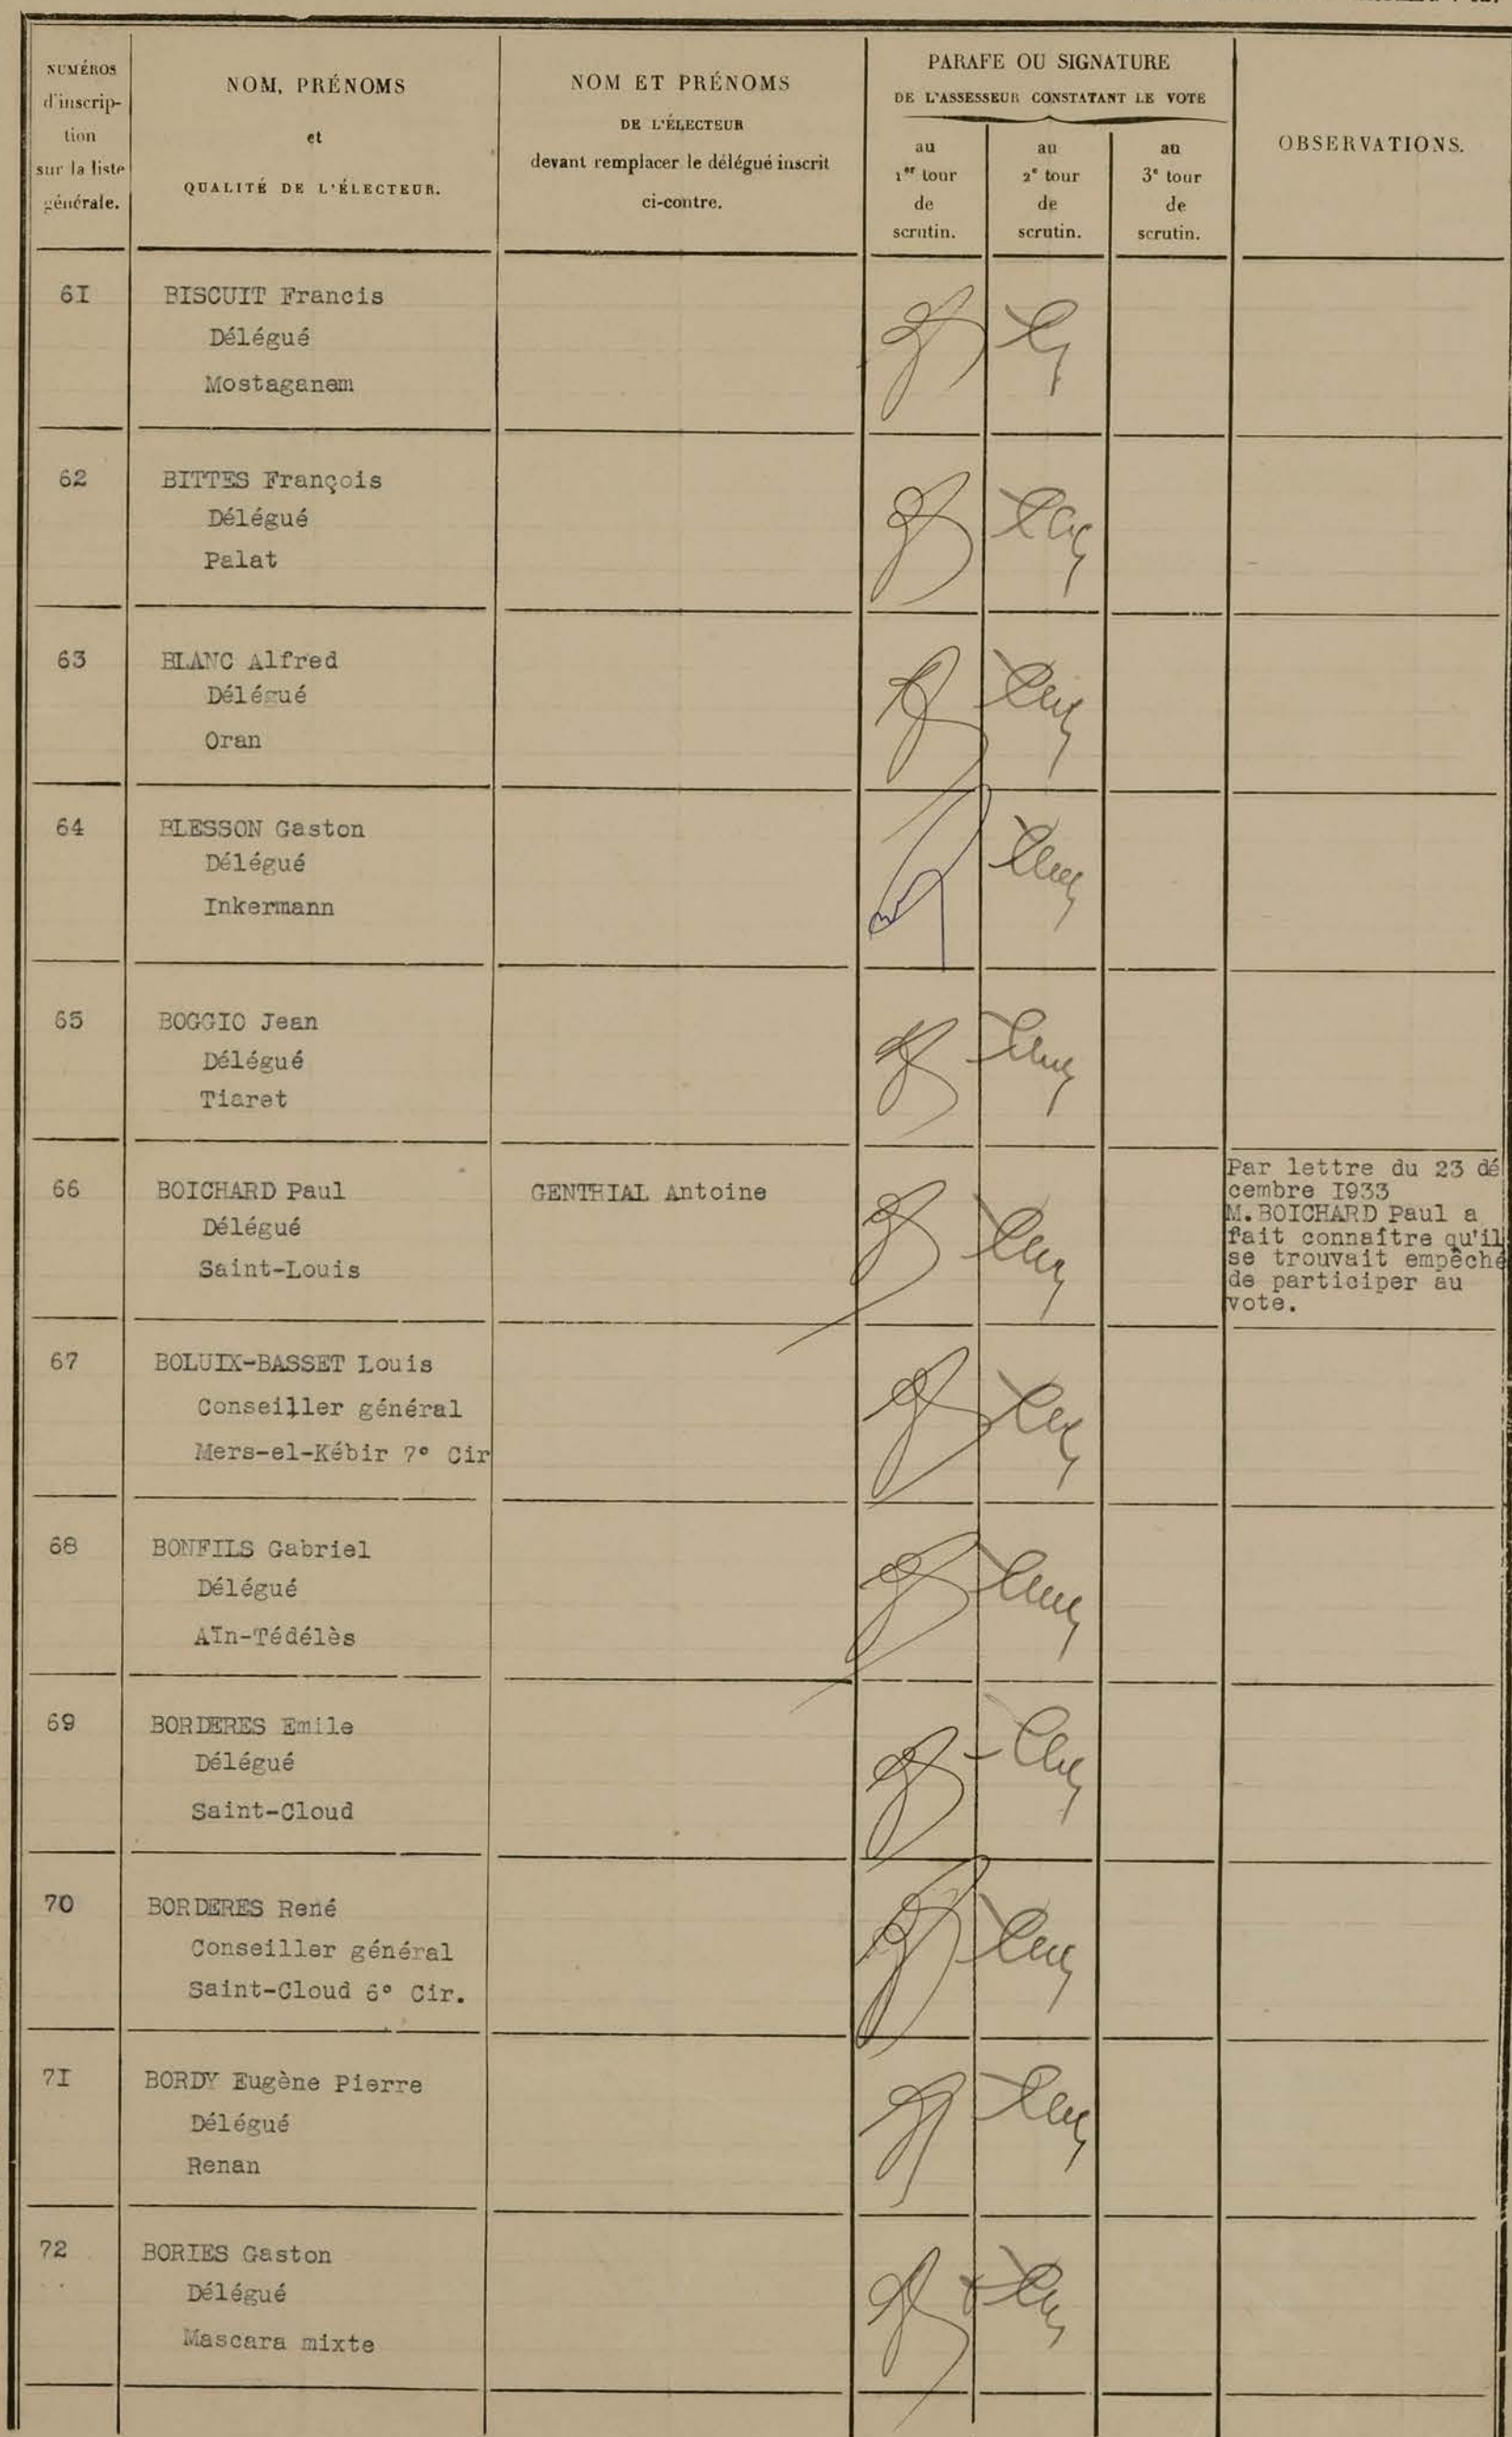 NUMÉROS
d'inscrip-
tion
sur la liste
générale.
NOM, PRÉNOMS
et
QUALITÉ DE L'ÉLECTEUR.
NOM ET PRÉNOMS
DE L'ÉLECTEUR
devant remplacer le délégué inscrit
ci-contre.
PARAFE OU SIGNATURE
DE L'ASSESSEUR CONSTATANT LE VOTE
au
1er tour
de
scrutin.
au
2e tour
de
scrutin.
au
3e tour
de
scrutin.
OBSERVATIONS.
6I
BISCUIT Francis
Délégué
Mostaganem
62
BITTES François
Délégué
Palat
63
BLANC Alfred
Délégué
Oran
64
BLESSON Gaston
Délégué
Inkermann
65
BOGGIO Jean
Délégué
Tiaret
66
BOICHARD Paul
Délégué
Saint-Louis
GENTHIAL Antoine
Par lettre du 23 dé
cembre I933
M. BOICHARD Paul a
fait connaître qu'il
se trouvait empêché
de participer au
vote.
67
BOLUIX-BASSET Louis
Conseiller général
Mers-el-Kébir 7° Cir
68
BONFILS Gabriel
Délégué
Aïn-Tédélès
69
BORDERES Emile
Délégué
Saint-Cloud
70
BORDERES René
Conseiller général
Saint-Cloud 6° Cir.
7I
BORDY Eugène Pierre
Délégué
Renan
72
BORIES Gaston
Délégué
Mascara mixte